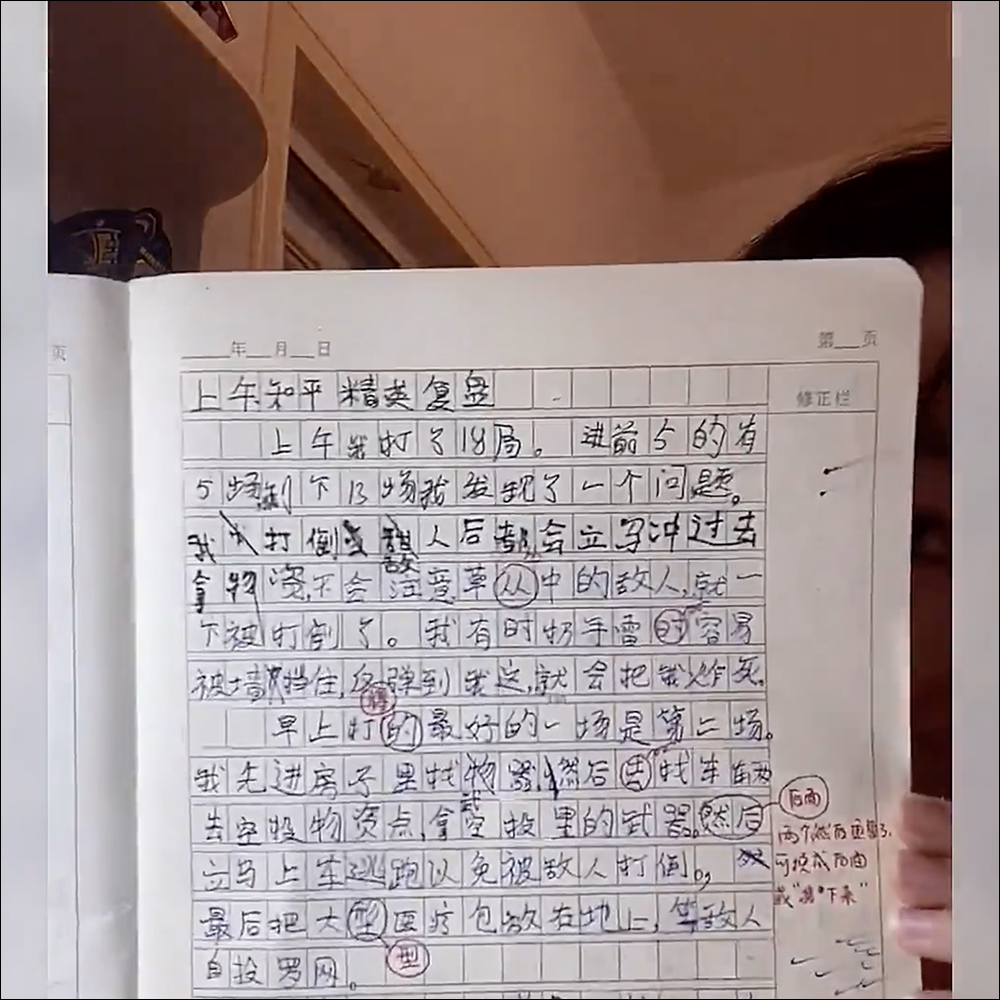 页
年 月 日
第 页
修正栏
上午和平精英复盘
上午我打了18局。进前5的有
5场剩下13场我发现了一个问题。
我打倒敌人后都会立马冲过去
拿物资,不会注意草从中的敌人,就一
下被打倒了。我有时扔手雷时容易
被墙挡住,弹到我这,就会把我炸死。
得
早上打的最好的一场是第二场。
我先进房子里找武器,然后去找车车两
去空投物资点,拿空投里的武器。然后
后面
立马上车逃跑以免被敌人打倒。
两个然后重复了,
可换成后面
或"接下来"
最后把大型医疗包放在地上,等敌人
型
自投罗网。